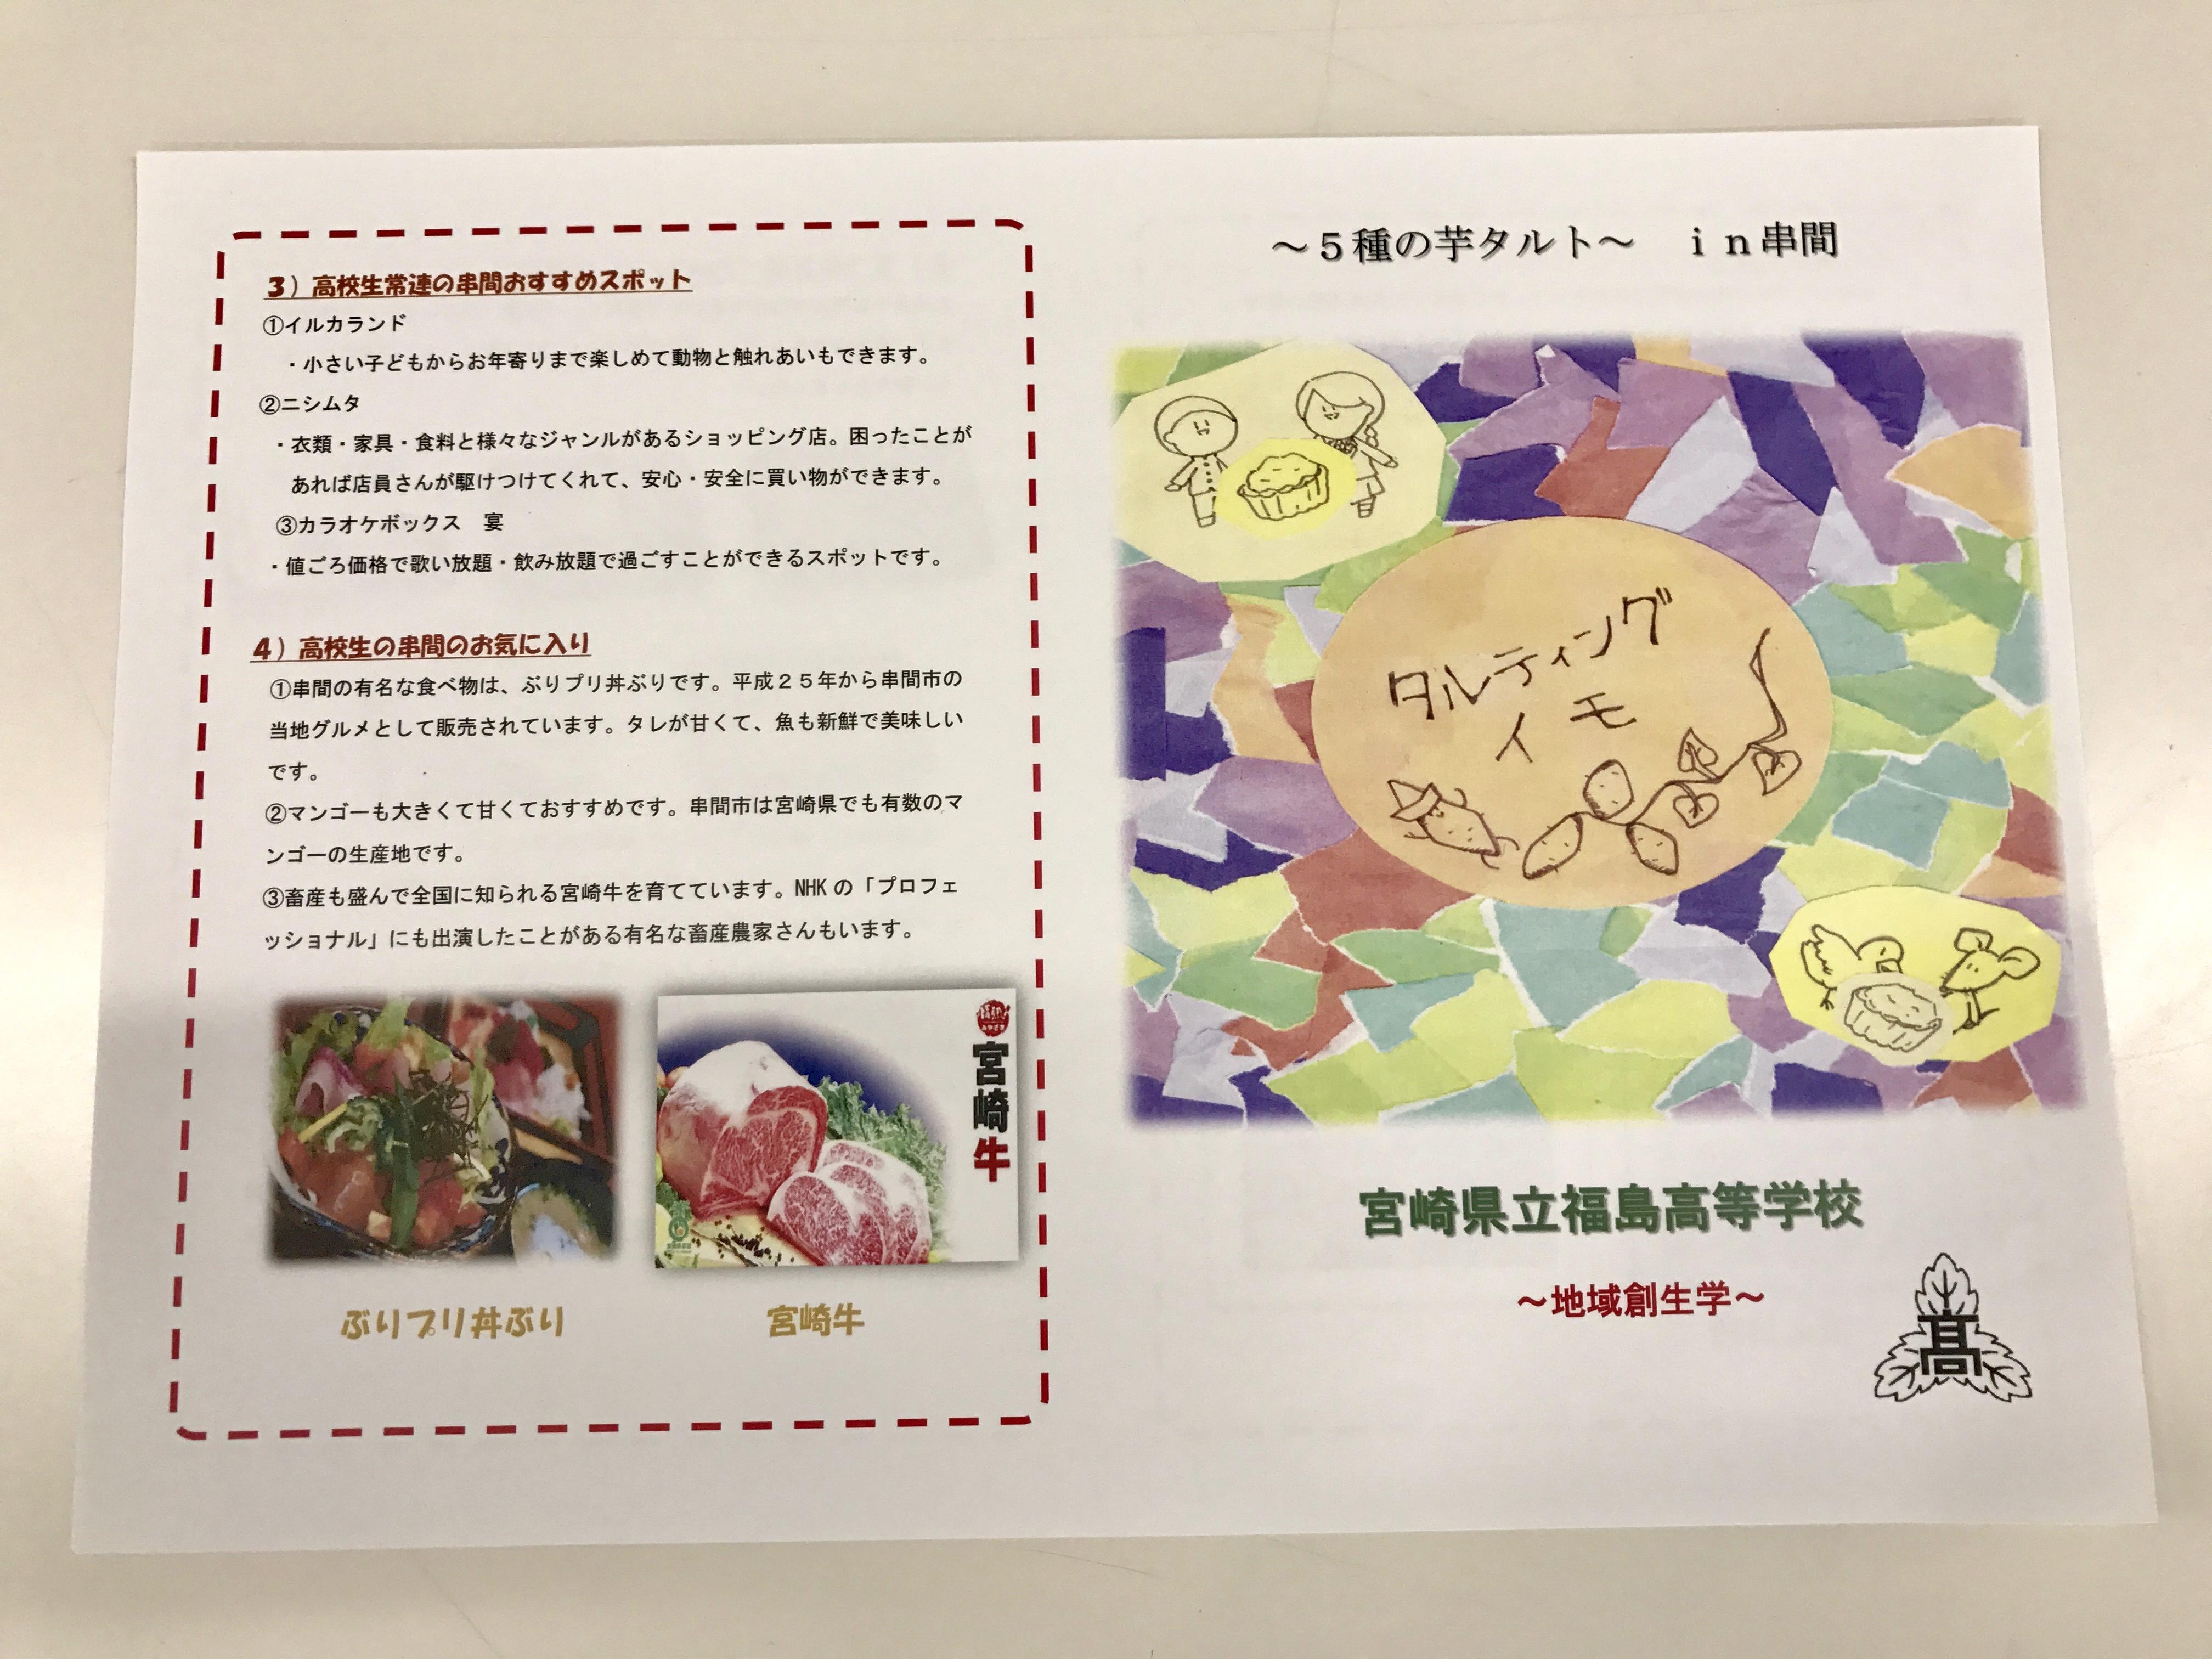 3）高校生常連の串間おすすめスポット
①イルカランド
・小さい子どもからお年寄りまで楽しめて動物と触れあいもできます。
②ニシムタ
・衣類・家具・食料と様々なジャンルがあるショッピング店。困ったことが
あれば店員さんが駆けつけてくれて、安心・安全に買い物ができます。
③カラオケボックス　宴
・値ごろ価格で歌い放題・飲み放題で過ごすことができるスポットです。
4）高校生の串間のお気に入り
①串間の有名な食べ物は、ぶりプリ丼ぶりです。平成２５年から串間市の
当地グルメとして販売されています。タレが甘くて、魚も新鮮で美味しい
です。
②マンゴーも大きくて甘くておすすめです。串間市は宮崎県でも有数のマ
ンゴーの生産地です。
③畜産も盛んで全国に知られる宮崎牛を育てています。NHKの「プロフェ
ッショナル」にも出演したことがある有名な畜産農家さんもいます。
宮崎牛
ぶりプリ丼ぶり
宮崎牛
～５種の芋タルト～　ｉｎ串間
タルティング
イモ
宮崎県立福島高等学校
～地域創生学～
高